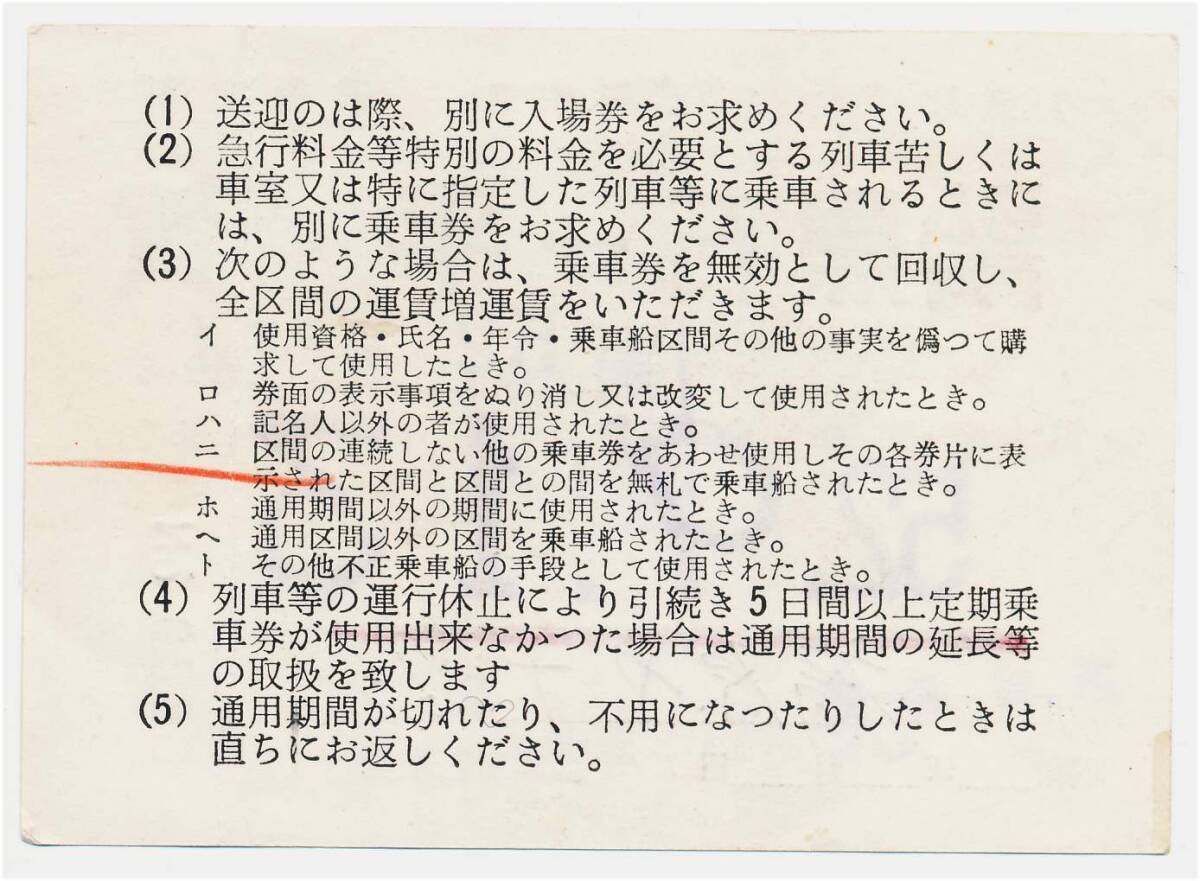 (1) 送迎のは際、別に入場券をお求めください。
(2) 急行料金等特別の料金を必要とする列車苦しくは
車室又は特に指定した列車等に乗車されるときに
は、別に乗車券をお求めください。
(3) 次のような場合は、乗車券を無効として回収し、
全区間の運賃増運賃をいただきます。
イ 使用資格・氏名・年令・乗車船区間その他の事実を僞つて購
求して使用したとき。
ロ 券面の表示事項をぬり消し又は改変して使用されたとき。
ハ 記名人以外の者が使用されたとき。
ニ 区間の連続しない他の乗車券をあわせ使用しその各券片に表
示された区間と区間との間を無札で乗車船されたとき。
ホ 通用期間以外の期間に使用されたとき。
ヘ 通用区間以外の区間を乗車船されたとき。
ト その他不正乗車船の手段として使用されたとき。
(4) 列車等の運行休止により引続き5日間以上定期乗
車券が使用出来なかつた場合は通用期間の延長等
の取扱を致します
(5) 通用期間が切れたり、不用になつたりしたときは
直ちにお返しください。